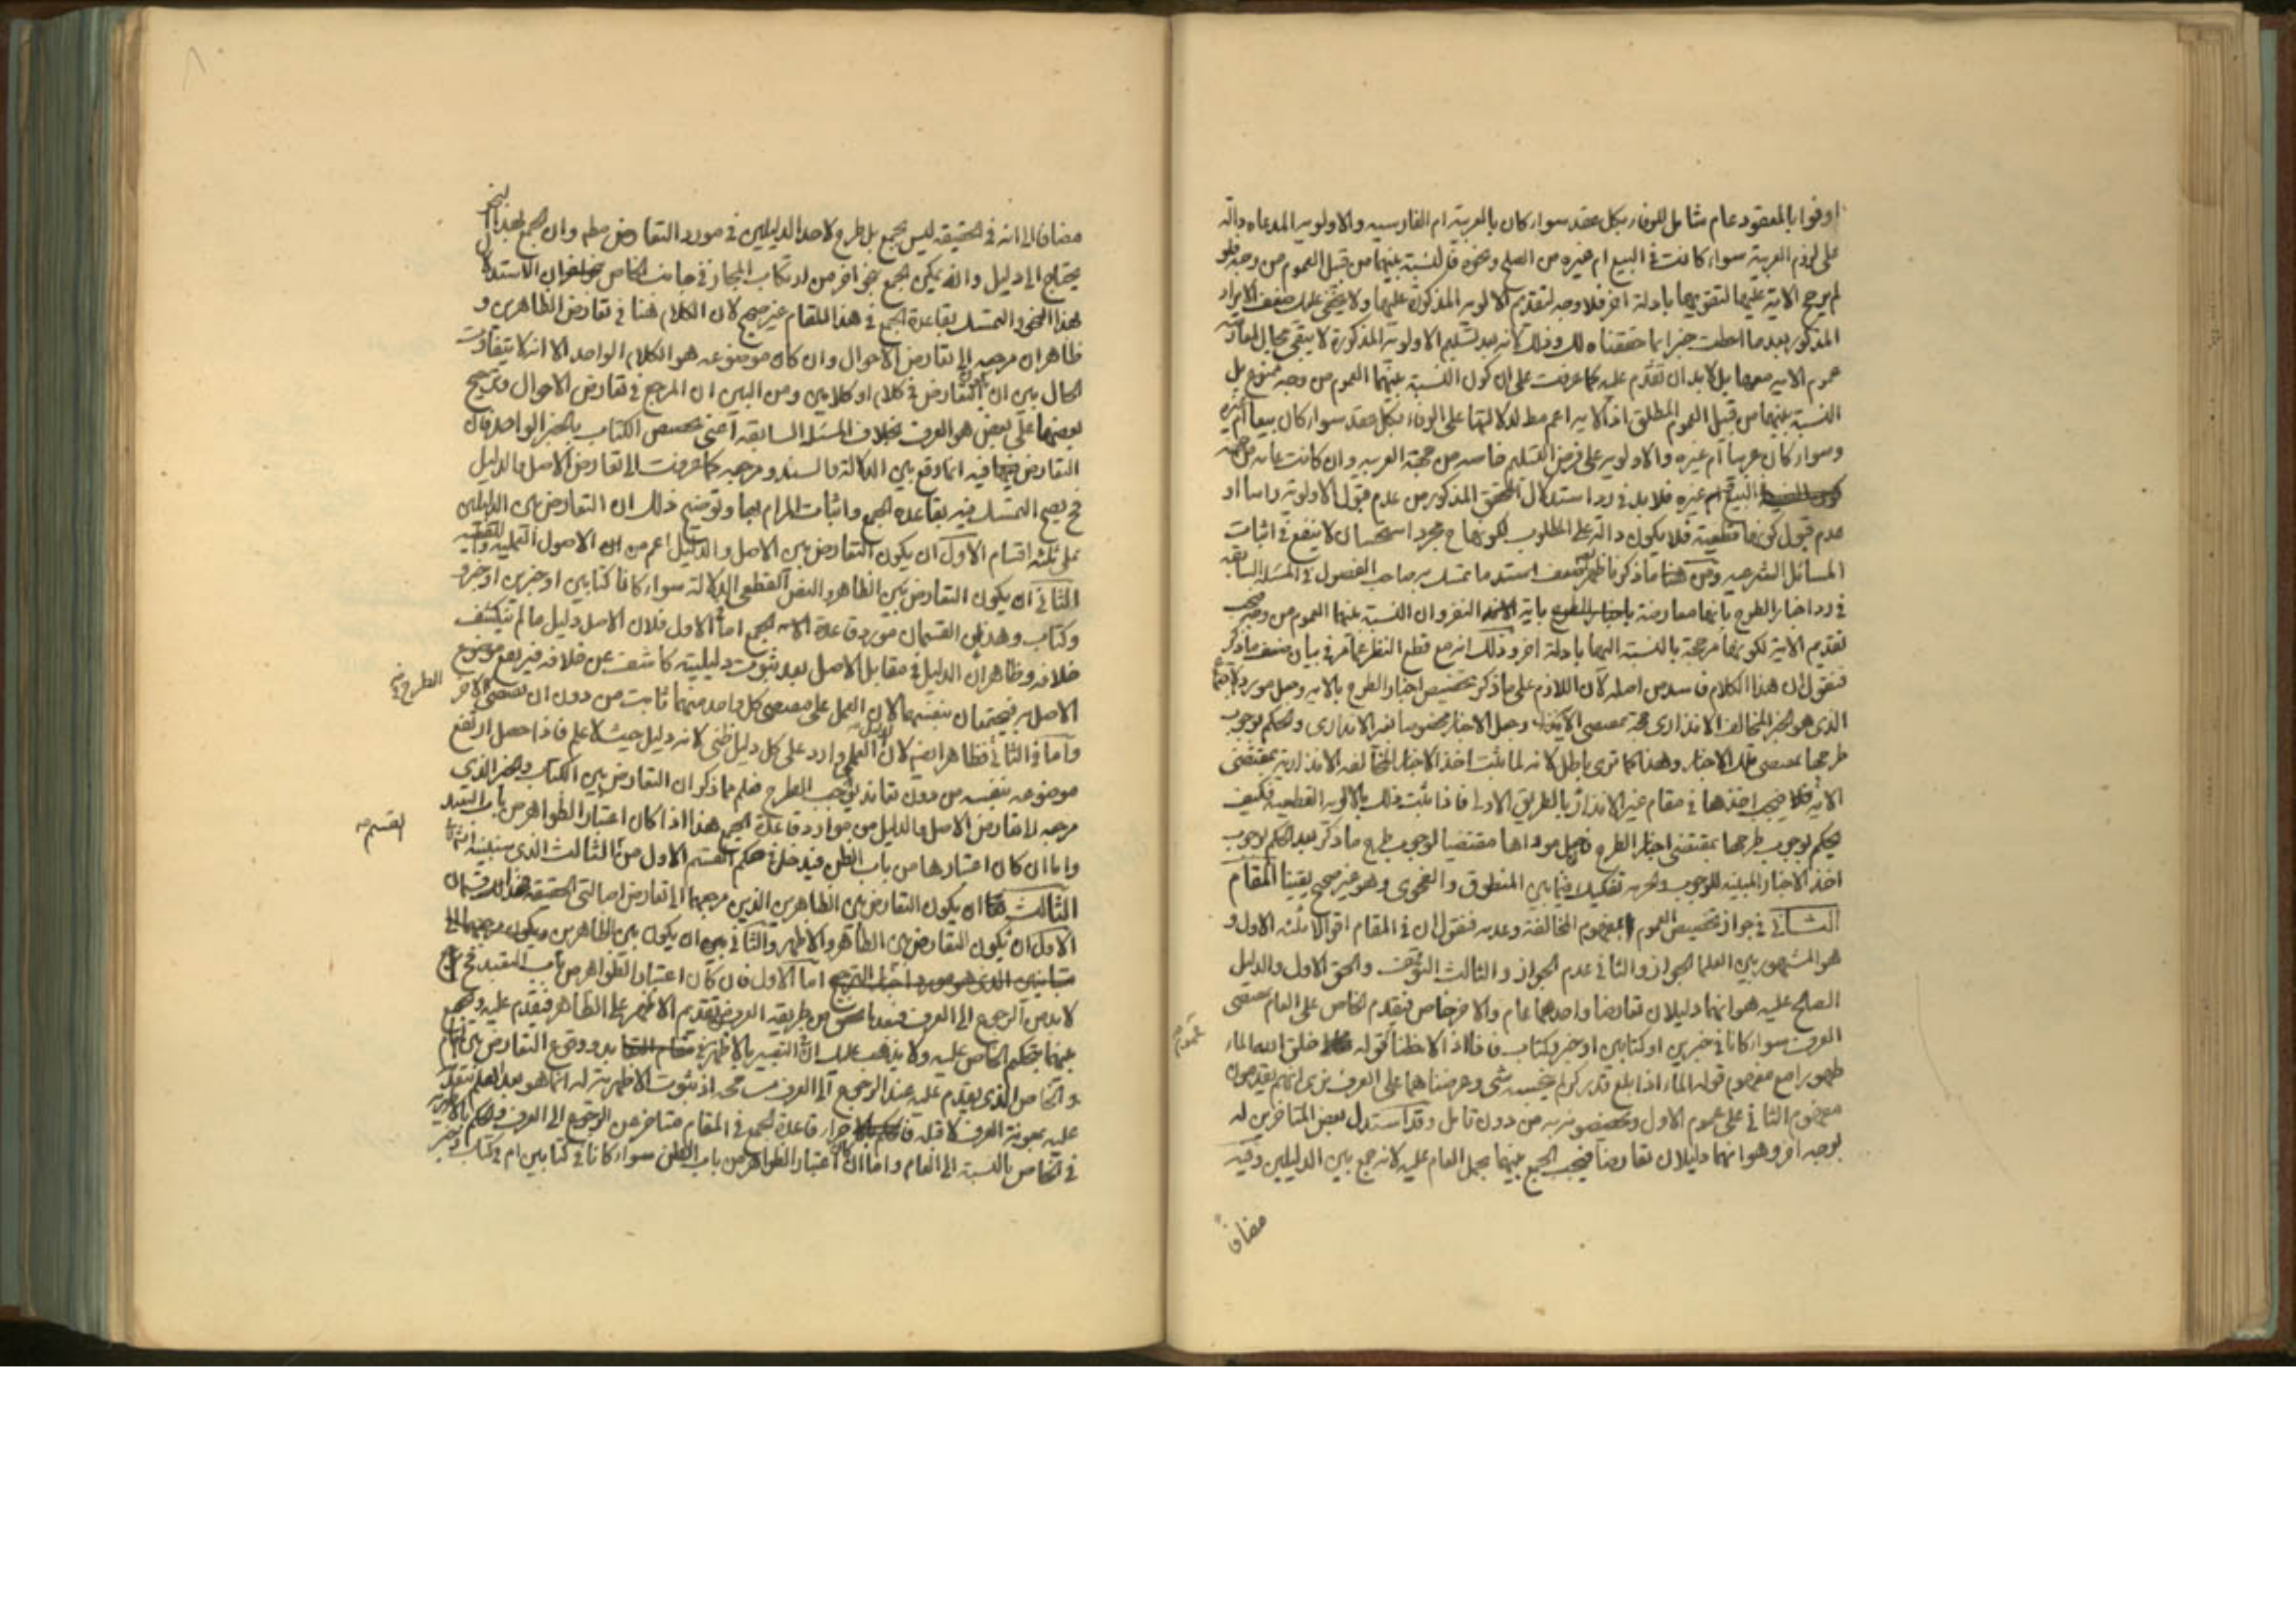 اوفوا بالعقود عام شامل للوفاء بكل عقد سواء كان بالعربية ام الفارسيه والاولويه المدعاه دالة
على لزوم العربية سواء كانت في البيع ام غيره من الصلح ونحوه فالنسبة بينهما من قبيل العموم من وجه فلو
لم يرجح الاية عليها لتقويتها بادلة اخر فلا وجه لتقديم الاولويه المذكورة عليها ولا يخفى عليك ضعف الايراد
المذكور بعد ما احطت خبرا بما حققناه لك وذلك لانه بعد تسليم الاولوية المذكورة لا يبقى مجال لمعارضة
عموم الايه معها بل لا بد ان تقدم عليه كما عرفت على ان كون النسبة بينهما العموم من وجه ممنوع بل
النسبة بينهما من قبيل العموم المطلق اذ الايه اعم مط لدلالتها على الوفاء بكل عقد سواء كان بيعا ام غيره
وسواء كان عربيا ام غيره والاولويه على فرض التسليم خاصه من جهة العربيه وان كانت عامه من جهة
البيع ام غيره فلا بد في رد استدلال المحقق المذكور من عدم قبول الاولوية راسا او
عدم قبول كونها قطعية فلا يكون دالة على المطلوب لكونها ح مجرد استحسان لا ينفع في اثبات
المسائل الشرعيه ومن هنا وما ذكرنا ظهر ضعف استد ما تمسك به صاحب الفصول في المسئلة السابقه
في رد اخبار الطرح بانها معارضة باية النفر وان النسبة بينهما العموم من وجه فيجب
تقديم الاية لكونها مرجحة بالنسبة اليها بادلة اخر وذلك انه مع قطع النظر عما مر في بيان ضعف ما ذكر
فنقول ان هذا الكلام فاسد من اصله لان اللازم على ما ذكر تخصيص اخبار الطرح بالايه وحمل مورد
الذى هو الخبر المخالف الانذارى بمقتضى الاية وحمل الاخبار مخصوصا بغير الانذارى والحكم بوجوب
طرحها بمقتضى تلك الاخبار وهذا كما ترى باطل لانه لما يثبت اخذ الاخبار المخالفه الانذارية بمقتضى
الاية فلا يجب اخذها في مقام غير الانذار بالطريق الاولى فاذا ثبت ذلك بالاولويه القطعيه فكيف
يحكم بوجوب طرحها بمقتضى اخبار الطرح مقتضيا لوجوب طرح ما ذكر بعد الحكم بوجوب
اخذ الاخبار المبينه للوجوب والحرمه تفكيك فيما بين المنطوق والفحوى وهو غير صحيح يقينا المقام
الثـانى في جواز تخصيص العموم بمفهوم المخالفة وعدمه فنقول ان في المقام اقوالا ثلثه الاول و
هو المشهور بين العلما الجواز والثانى عدم الجواز والثالث التوقف والحق الاول والدليل
الصالح عليه هو انهما دليلان تعارضا واحدهما عام والاخر خاص فيقدم الخاص على العام بمقتضى
العرف سواء كانا في خبرين او كتابين او خبر وكتاب فانا اذا لاحظنا قوله خلق الله الماء
طهورا مع مفهوم قوله الماء اذا بلغ قدر كر لم ينجسه شى وعرضناهما على العرف نرى انهم يقدمون
مفهوم الثانى على عموم الاول ويخصصونه به من دون تامل وقد استدل بعض المتاخرين له
بوجه اخر وهو انهما دليلان تعارضا فيجب الجمع بينهما بحمل العام عليه لانه جمع بين الدليلين وفيه
مضافا
مضافا الى انه في الحقيقه ليس بجمع بل طرح لاحد الدليلين في مورد التعارض مطم وان الجمع بهذا النحو
يحتاج الى دليل والا فيمكن الجمع بنحو اخر من ارتكاب المجاز في جانب الخاص ان الاستدلال
بهذا النحو والتمسك بقاعدة الجمع في هذا المقام غير صحيح لان الكلام هنا في تعارض الظاهرين و
ظاهر ان مرجعه الى تعارض الاحوال وان كان موضوعه هو الكلام الواحد الا انه لا يتفاوت
الحال بين ان التعارض في كلام او كلامين ومن البين ان المرجح في تعارض الاحوال وترجيح
بعضها على بعض هو العرف بخلاف المسئلة السابقه اعنى تخصيص الكتاب بالخبر الواحد فان
التعارض فيه انما وقع بين الدلالة والسند ومرجعه كما عرفت الى تعارض الاصل والدليل
فح يصح التمسك فيه بقاعدة الجمع واثبات المرام بها وتوضيح ذلك ان التعارض بين الدليلين
على ثلثه اقسام الاول ان يكون التعارض بين الاصل والدليل اعم من الاصول العمليه واللفظيه
الثانى ان يكون التعارض بين الظاهر والنص القطعى الدلالة سواء كانا كتابين او خبرين او خبر و
وكتاب وهذين القسمان مورد قاعدة الجمع اما الاول فلان الاصل دليل ما لم ينكشف
خلافه وظاهر ان الدليل في مقابل الاصل بعد ثبوت دليليته كاشف عن خلافه فيرتفع موضوع
الاصل به فيجتمعان بنفسهما لان العمل على مقتضى كل واحد منهما ثابت من دون ان يقتضى الاخر
الطرح
واما في الثانى فظاهر ايضا لان الدليل العلمى وارد على كل دليل ظنى لانه دليل حيث لا علم فاذا حصل ارتفع
موضوعه بنفسه من دون تعاند يوجب الطرح فعلم مما ذكر ان التعارض بين الكتاب والخبر الذى
مرجعه الى تعارض الاصل والدليل من موارد قاعدة الجمع هذا اذا كان اعتبار الظواهر من باب التعبد
واما ان كان اعتبارها من باب الظن فيدخل في حكم القسم الاول من الثالث الذى سنبينه انشاء
القسم
الثالث ان يكون التعارض بين الظاهرين الذين مرجعهما الى تعارض اصالتى الحقيقه
الاول ان يكون التعارض بين الظاهر والاظهر والثانى ان يكون بين الظاهرين
اما الاول فان كان اعتبار الظواهر من باب التعبد فح
لا بد من الرجوع الى العرف من طريقه العرف تقديم الاظهر على الظاهر فيقدم عليه ويجمع
بينهما بتحكيم الخاص عليه ولا يذهب عليك ان التعبير بالاظهر في ووقوع التعارض بين العام
والخاص الذى يقدم عليه عند الرجوع الى العرف مسامحه اذ ثبوت الاظهرية له انما هو بعد
عليه بمعونة العرف لا قبله قاعدة الجمع في المقام متاخر عن الرجوع الى العرف والحكم بالاظهرية
في الخاص بالنسبة الى العام واما ان كان اعتبار الظواهر من باب الظن سواء كانا في كتابين ام في كتاب وخبر